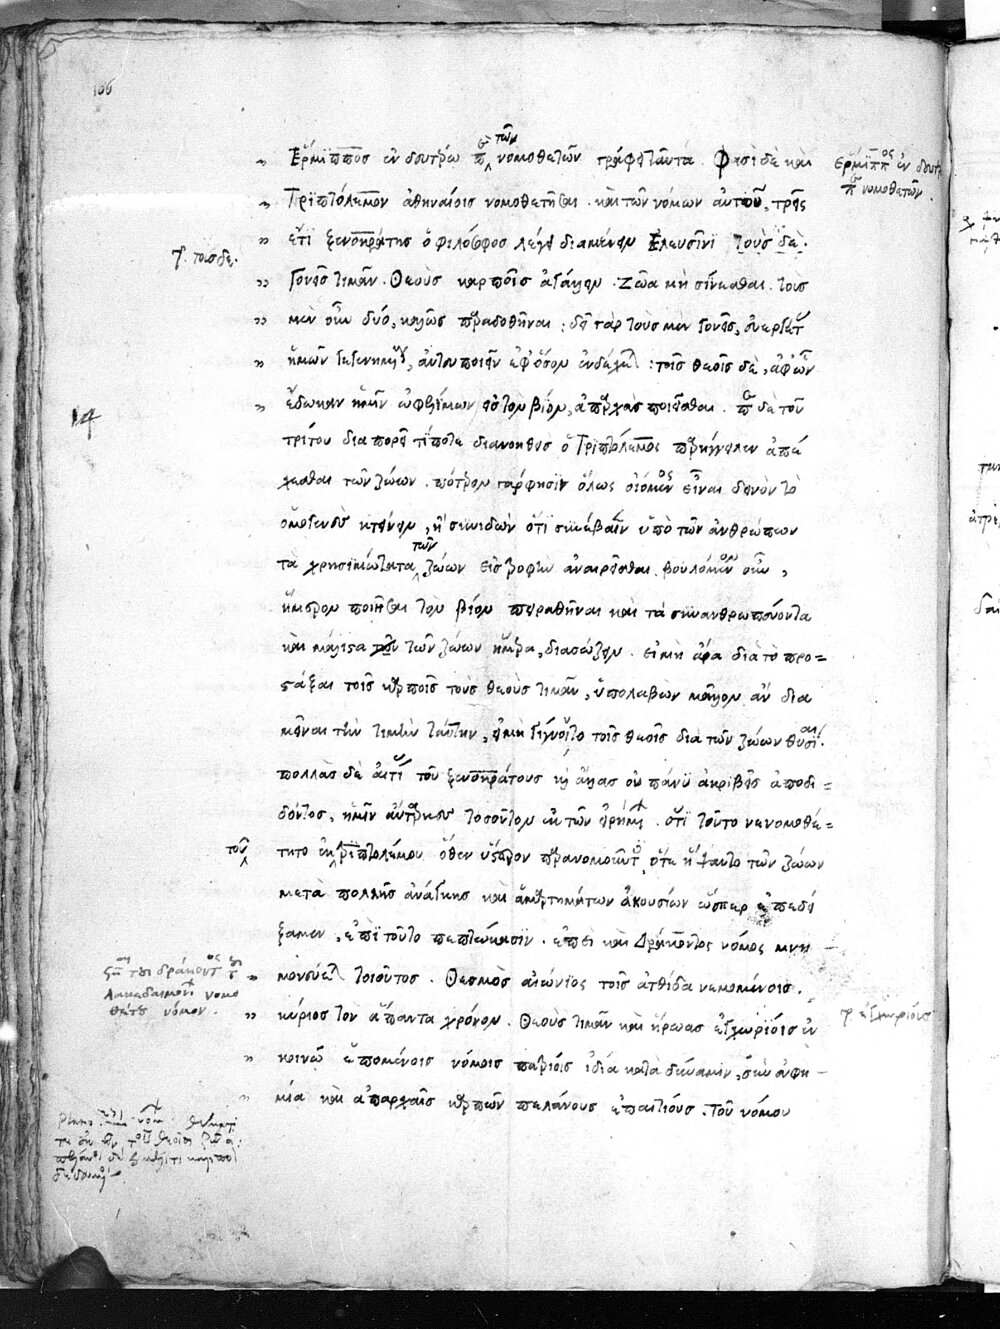 106
Ἕρμιππος ἐν δευτέρω π νομοθετῶν γράφει ταῦτα. Φασὶ δὲ καὶ
τῶν
Ἕρμιππος ἐν δευτ
π νομοθετῶν
Τριπτόλεμον ἀθηναίοις νομοθετῆσαι. καὶ τῶν νόμων αὐτοῦ, τρεῖς
ἔτι ξενοκράτης ὁ φιλόσοφος λέγει διαμένειν Ἐλευσῖνι τοὺς δὲ.
γ. τοισδε.
Γονεῖς τιμᾶν. Θεοὺς καρποῖς ἀγάλλειν. Ζῶα μὴ σίνεσθαι. τοὺς
μὲν οὖν δύο, καλῶς παραδοθῆναι: δεῖ γὰρ τοὺς μὲν γονεῖς, εὐεργέτ
ἡμῶν γεγενημ, ἀντευποιεῖν ἐφ' ὅσον ἐνδέχεται: τοῖς θεοῖς δὲ, ἀφ' ὧν
ἔδωκαν ἡμῖν ὠφελίμων εἰς τὸν βίον, ἀπαρχὰς ποιεῖσθαι. π δὲ τοῦ
14
τρίτου διαπορεῖ τί ποτε διανοηθεὶς ὁ Τριπτόλεμος παρήγγειλεν ἀπέ
χεσθαι τῶν ζώων. πότερον γάρ φησιν ὅλως οἰόμενος εἶναι δεινὸν τὸ
ὁμογενὲς κτείνειν, ἢ συνιδὼν ὅτι συνέβαινεν ὑπὸ τῶν ἀνθρώπων
τὰ χρησιμώτατα τῶν ζώων εἰς τροφὴν ἀναιρεῖσθαι. βουλόμενον οὖν,
ἥμερον ποιῆσαι τὸν βίον πειραθῆναι καὶ τὰ συνανθρωπεύοντα
καὶ μάλιστα τῶν ζώων ἥμερα, διασώζειν. εἰ μὴ ἄρα διὰ τὸ προ=
στάξαι τοῖς καρποῖς τοὺς θεοὺς τιμᾶν, ὑπολαβὼν μᾶλλον ἂν δια
μεῖναι τὴν τιμὴν ταύτην, εἰ μὴ γίγνοιτο τοῖς θεοῖς διὰ τῶν ζώων θυσίαι.
πολλὰς δὲ αἰτί τοῦ ξενοκράτους κ ἄλλας οὐ πάνυ ἀκριβεῖς ἀποδι=
δόντος, ἡμῖν αὔταρκες τοσοῦτον ἐκ τῶν εἰρημ. ὅτι τοῦτο νενομοθέ=
τητο ἐκ τριπτολέμου ὅθεν ὕστερον παρανομοῦντ, ὅτε ἥψαντο τῶν ζώων
τοῦ
μετὰ πολλῆς ἀνάγκης καὶ ἁμαρτημάτων ἀκουσίων ὥσπερ ἐπεδεί
ξαμεν, ἐπὶ τοῦτο πεπτώκασιν. ἐπεὶ καὶ Δράκοντος νόμος μνη-
μονεύεται τοιοῦτος. Θεσμὸς αἰώνιος τοῖς ἀτθίδα νεμομένοις.
Λακεδαιμον νομο
νόμον.
κύριος τὸν ἅπαντα χρόνον. Θεοὺς τιμᾶν καὶ ἥρωας ἐγχωρίοις ἐν
γ. ἐγχωρίους
κοινῷ ἑπομένοις νόμοις πατρίοις ἰδίᾳ κατὰ δύναμιν, σὺν εὐφη-
μίᾳ καὶ ἀπαρχαῖς καρπῶν πελάνους ἐπετείους. τοῦ νόμου